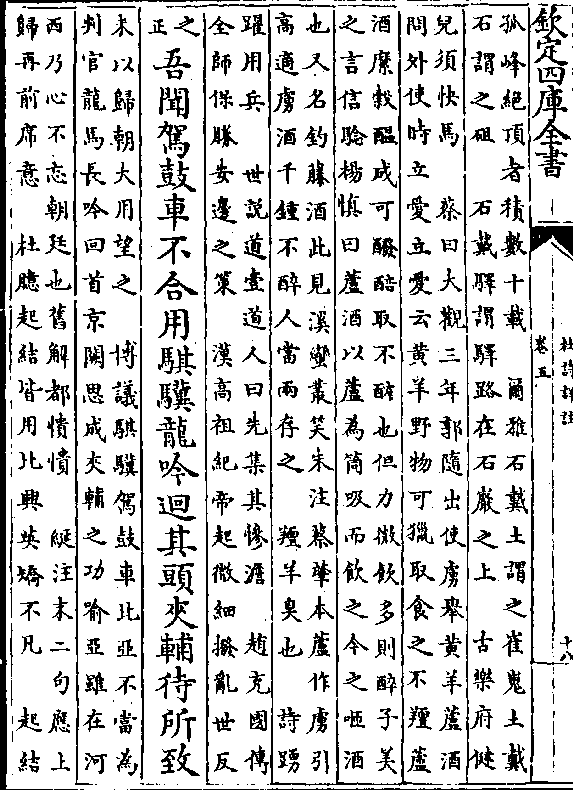 欽定四庫全書
杜詩詳註
卷五
十八
孤峰絶頂者積數十載　爾雅石戴土謂之崔嵬土戴
石謂之砠　石戴驛謂驛路在石巖之上　古樂府健
兒須快馬　蔡曰大觀三年郭隨出使虜舉黃羊蘆酒
問外使時立愛立愛云黃羊野物可獵取食之不羶蘆
酒糜穀醞成可醱醅取不醡也但力微飲多則醉子美
之言信驗楊慎曰蘆酒以蘆為筒吸而飲之今之咂酒
也又名釣藤酒此見溪蠻叢笑朱注蔡肇本蘆作虜引
高適虜酒千鍾不醉人當兩存之　羶羊臭也　詩踴
躍用兵　世說道壹道人曰先集其慘澹　趙充國傳
全師保勝安邊之策　漢高祖紀帝起微細撥亂世反
之
正
吾聞駕鼓車不合用騏驥龍吟迴其頭夾輔待所致
末以歸朝大用望之　博議騏驥駕鼓車比亞不當為
判官龍馬長吟回首京闕思成夾輔之功喻亞雖在河
西乃心不忘朝廷也舊解都憒憒　綖注末二句應上
歸再前席意　杜臆起結皆用比興英矯不凡　起結